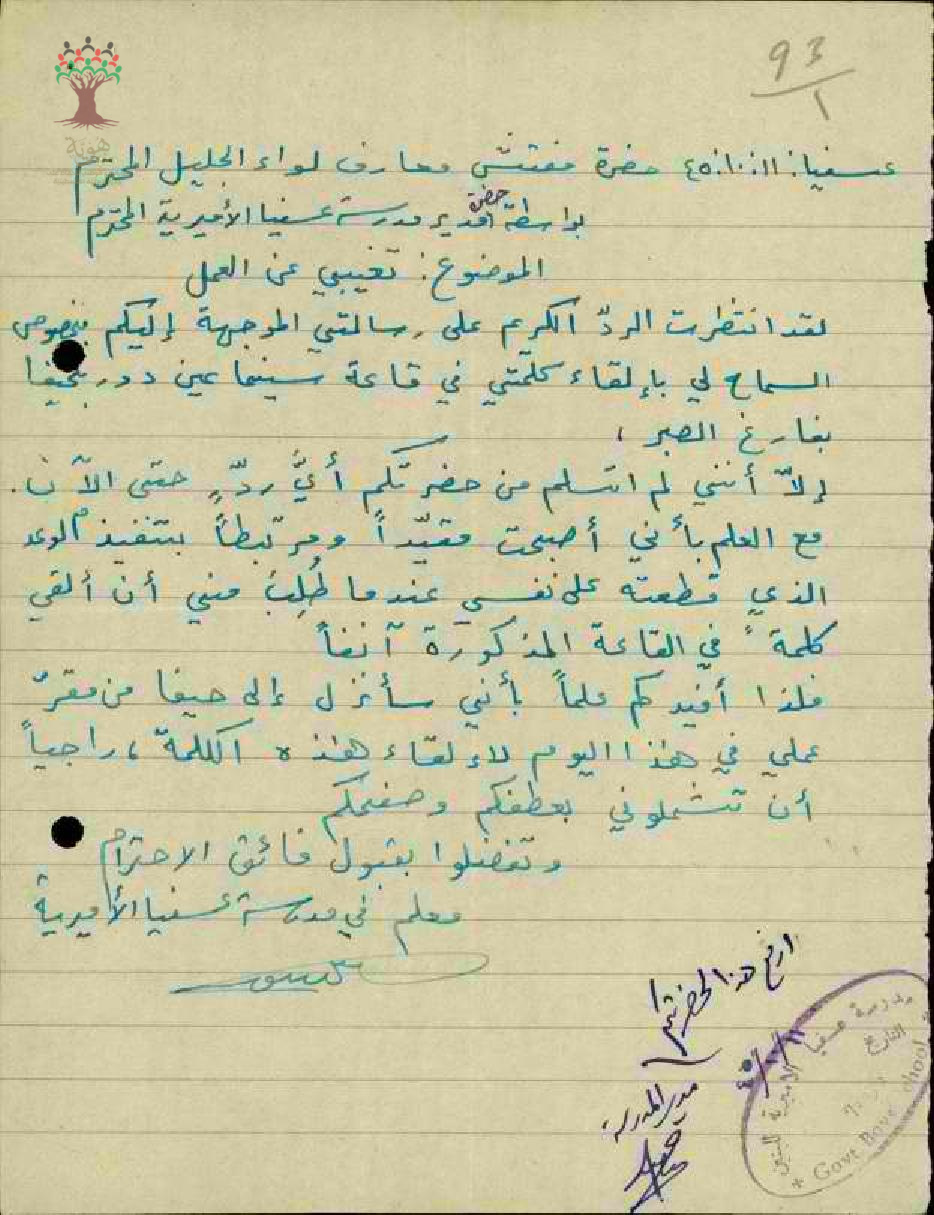 93
١
هوية
عسفيا: ١١. ١٠. ٤٥ حضرة مفتش معارف لواء الجليل المحترم
بواسطة حضرة مدير مدرسة عسفيا الأميرية المحترم
الموضوع: تغيبي عن العمل
لقد انتظرت الردّ الكريم على رسالتي الموجهة إليكم بخصوص
السماح لي بإلقاء كلمتي في قاعة سينما عين دور بحيفا
بفارغ الصبر،
إلاّ أنني لم اتسلم من حضرتكم أيَّ ردّ حتى الآن.
مع العلم بأني أصبحت مقيّداً ومرتبطاً بتنفيذ الوعد
الذي قطعته على نفسي عندما طُلِبَ مني أن ألقي
كلمةً في القاعة المذكورة آنفاً
فلذا أفيدكم علماً بأني سأنزل إلى حيفا من مقرّ
عملي في هذا اليوم لإلقاء هذه الكلمة، راجياً
أن تشملوني بعطفكم وصفحكم
وتفضلوا بقبول فائق الاحترام
معلم في مدرسة عسفيا الأميرية
ارفع هذا لحضرتكم
مدير المدرسة
مدرسة عسفيا الاميرية للبنين
التاريخ
٤٥/١٠/١١
Govt Boys School